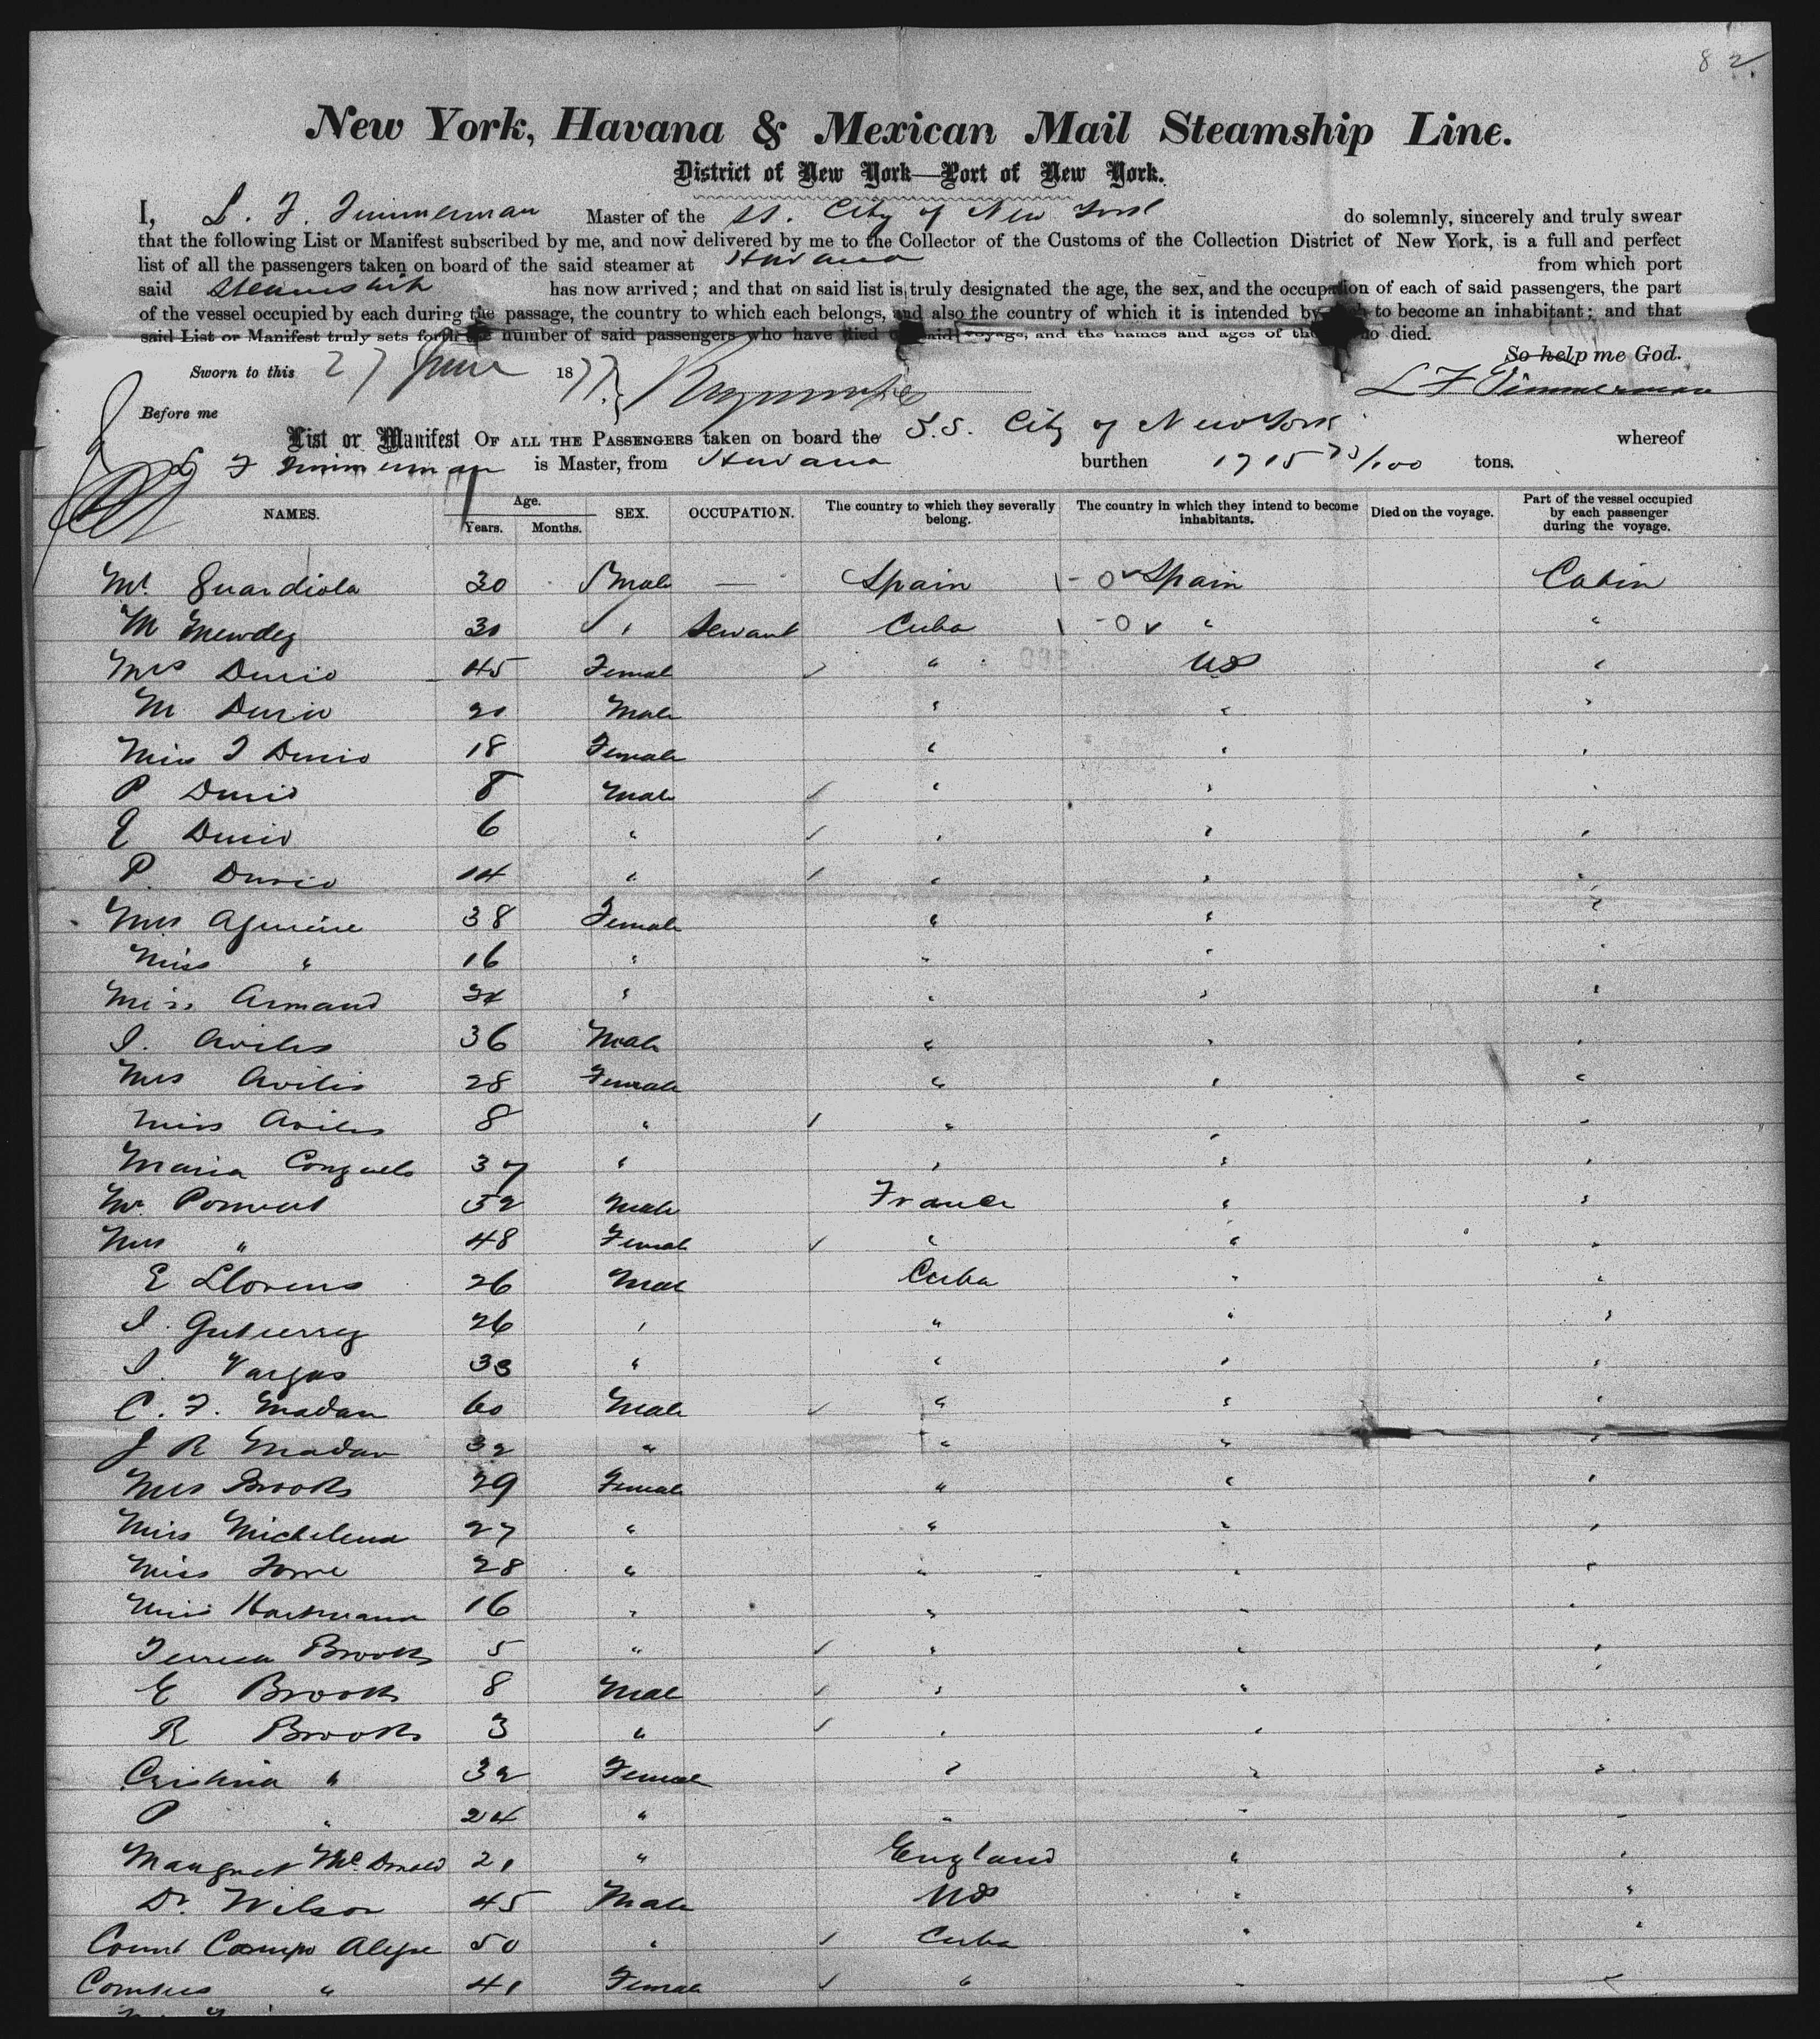 82
New York, Havana & Mexican Mail Steamship Line.
District of New York—Port of New York.
I, L. F. Timmerman Master of the SS. City of New York do solemnly, sincerely and truly swear
that the following List or Manifest subscribed by me, and now delivered by me to the Collector of the Customs of the Collection District of New York, is a full and perfect
list of all the passengers taken on board of the said steamer at Havana from which port
said Steamship has now arrived; and that on said list is truly designated the age, the sex, and the occupation of each of said passengers, the part
of the vessel occupied by each during the passage, the country to which each belongs, and also the country of which it is intended by to become an inhabitant; and that
said List or Manifest truly sets forth the number of said passengers who have died said voyage, and the names and ages of died.
So help me God.
Sworn to this 27 June 1877 L F Timmerman
Before me
List or Manifest OF ALL THE PASSENGERS taken on board the S.S. City of New York whereof
L F Timmerman is Master, from Havana burthen 1715 73/100 tons.
NAMES. Age. Years. Months. SEX. OCCUPATION. The country to which they severally belong. The country in which they intend to become inhabitants. Died on the voyage. Part of the vessel occupied by each passenger during the voyage.
Mr. Guardiola 30 Male — Spain - 0 Spain Cabin
M Mendez 30 " Servant Cuba - 0 " "
Mrs Durio 45 Female " US "
M Durio 20 Male " " "
Miss J Durio 18 Female " " "
P Durio 8 Male " " "
E Durio 6 " " " "
P. Durio 14 " " " "
Mrs 38 Female " " "
Miss " 16 " " " "
Miss Armand 24 " " " "
I. Aviles 36 Male " " "
Mrs Aviles 28 Female " " "
Miss Aviles 8 " " " "
Maria 37 " " " "
Mr. 52 Male France " "
Mrs " 48 Female " " "
E Llorens 26 Male Cuba " "
I. Gutierrez 26 " " " "
I. Vargas 33 " " " "
C. F. Madan 60 Male " " "
J R Madan 32 " " " "
Mrs Brooks 29 Female " " "
Miss Michelena 27 " " " "
Miss Torre 28 " " " "
Miss Hartmann 16 " " " "
Teresa Brooks 5 " " " "
E Brooks 8 Male " " "
R Brooks 3 " " " "
Cristina " 32 Female " " "
P " 24 " " " "
Margret McDonald 21 " England " "
Dr. Wilson 45 Male US " "
Count Campo Alegre 50 " Cuba " "
Comtess " 41 Female " " "